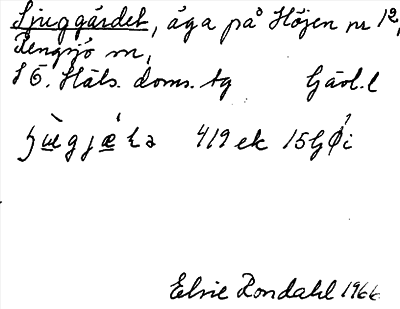 Ljuggärdet, äga på Höjen nr 12,
Rengsjö sn,
S Ö. Häls. doms. tg Gävl. l
419 ek 15G Ø i
Elsie Rondahl 1966